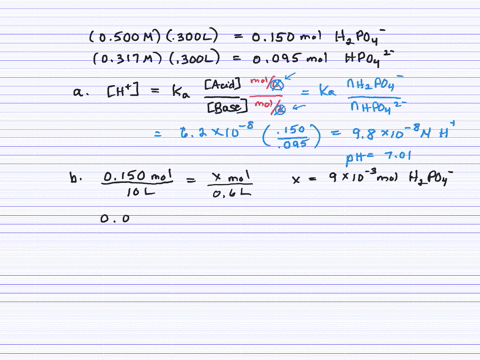 (0.500 M)(.300L) = 0.150 mol H₂PO₄⁻
(0.317 M)(.300L) = 0.095 mol HPO₄²⁻
a. [H⁺] = Ka [Acid]/[Base] mol/L / mol/L = Ka nH₂PO₄⁻/nHPO₄²⁻
= 6.2 × 10⁻⁸ (.150/.095) = 9.8 × 10⁻⁸ M H⁺
pH = 7.01
b. 0.150 mol/10 L = x mol/0.6 L x = 9 × 10⁻³ mol H₂PO₄⁻
0.0